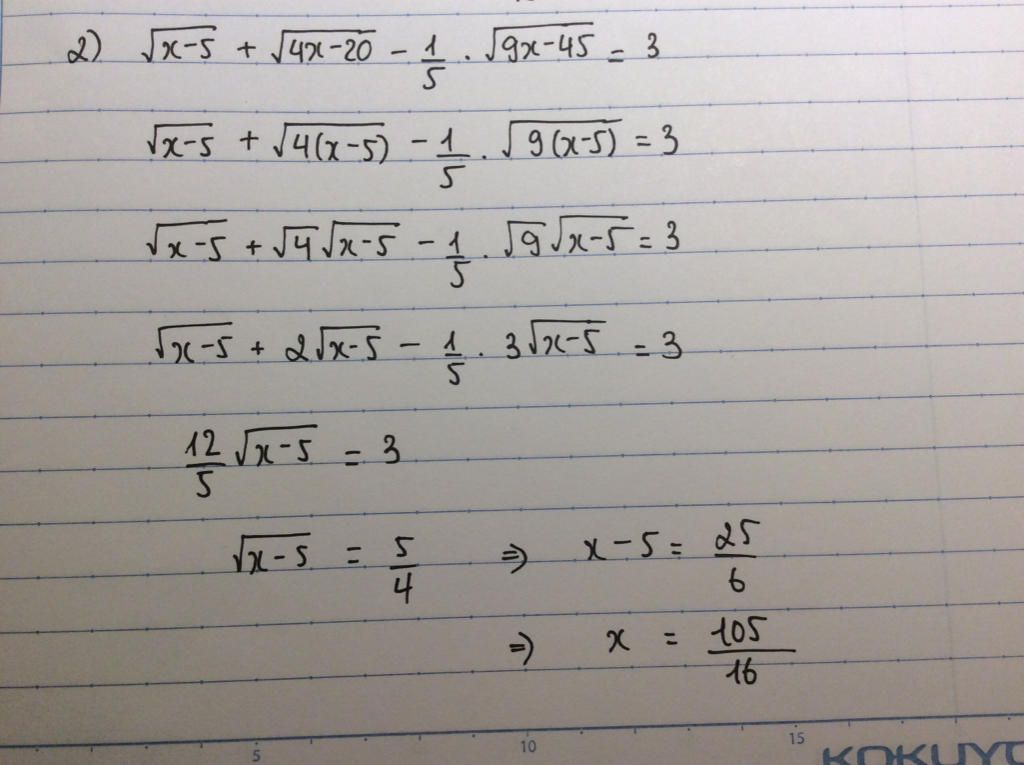 2) √(x-5) + √(4x-20) - 1/5 . √(9x-45) = 3
√(x-5) + √(4(x-5)) - 1/5 . √(9(x-5)) = 3
√(x-5) + √4 √(x-5) - 1/5 . √9 √(x-5) = 3
√(x-5) + 2√(x-5) - 1/5 . 3√(x-5) = 3
12/5 √(x-5) = 3
√(x-5) = 5/4 ⇒ x-5 = 25/6
⇒ x = 105/16
5 10 15 KOKUYO